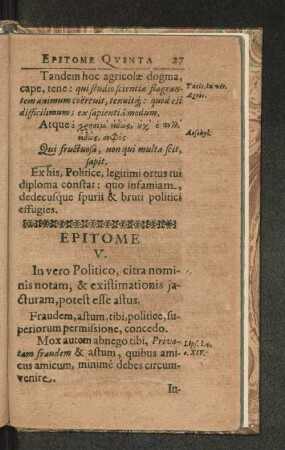 EPITOME QVINTA 27
Tandem hoc agricolæ dogma,
cape, tene: qui studio scientiæ flagran-
tem animum coërcuit, tenuitq́; quod est
difficilimum; ex sapientia modum.
Tacit. in vit.
Agric.
Atque:
Æschyl.
Qui fructuosa, non qui multa scit,
sapit.
Ex his, Politice, legitimi ortus tui
diploma constat: quo infamiam,
dedecusque spurii & bruti politici
effugies.
EPITOME
V.
In vero Politico, citra nomi-
nis notam, & existimationis ja-
cturam, potest esse astus.
Fraudem, astum, tibi, politice, su-
periorum permissione, concedo.
Mox autom abnego tibi, Priva-
tam fraudem & astum, quibus ami-
cus amicum, minimè debes circum-
venire.
Lips. l. 4.
c. XIV.
In-